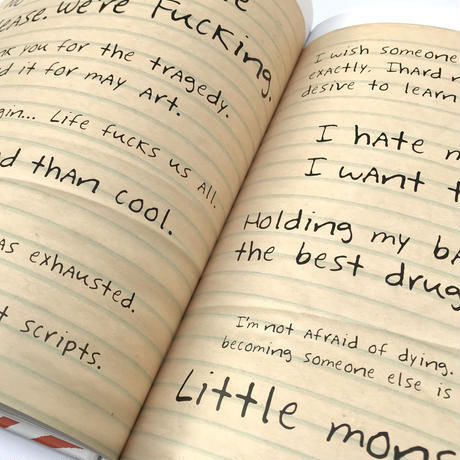 ease. We're Fucking.
you for the tragedy.
it for may Art.
Life fucks us all.
than cool.
exhausted.
scripts.
I wish someone
exactly. I hard
desire to learn
I hate
I want
Holding my
the best drug
I'm not afraid of dying.
becoming someone else is
Little mons